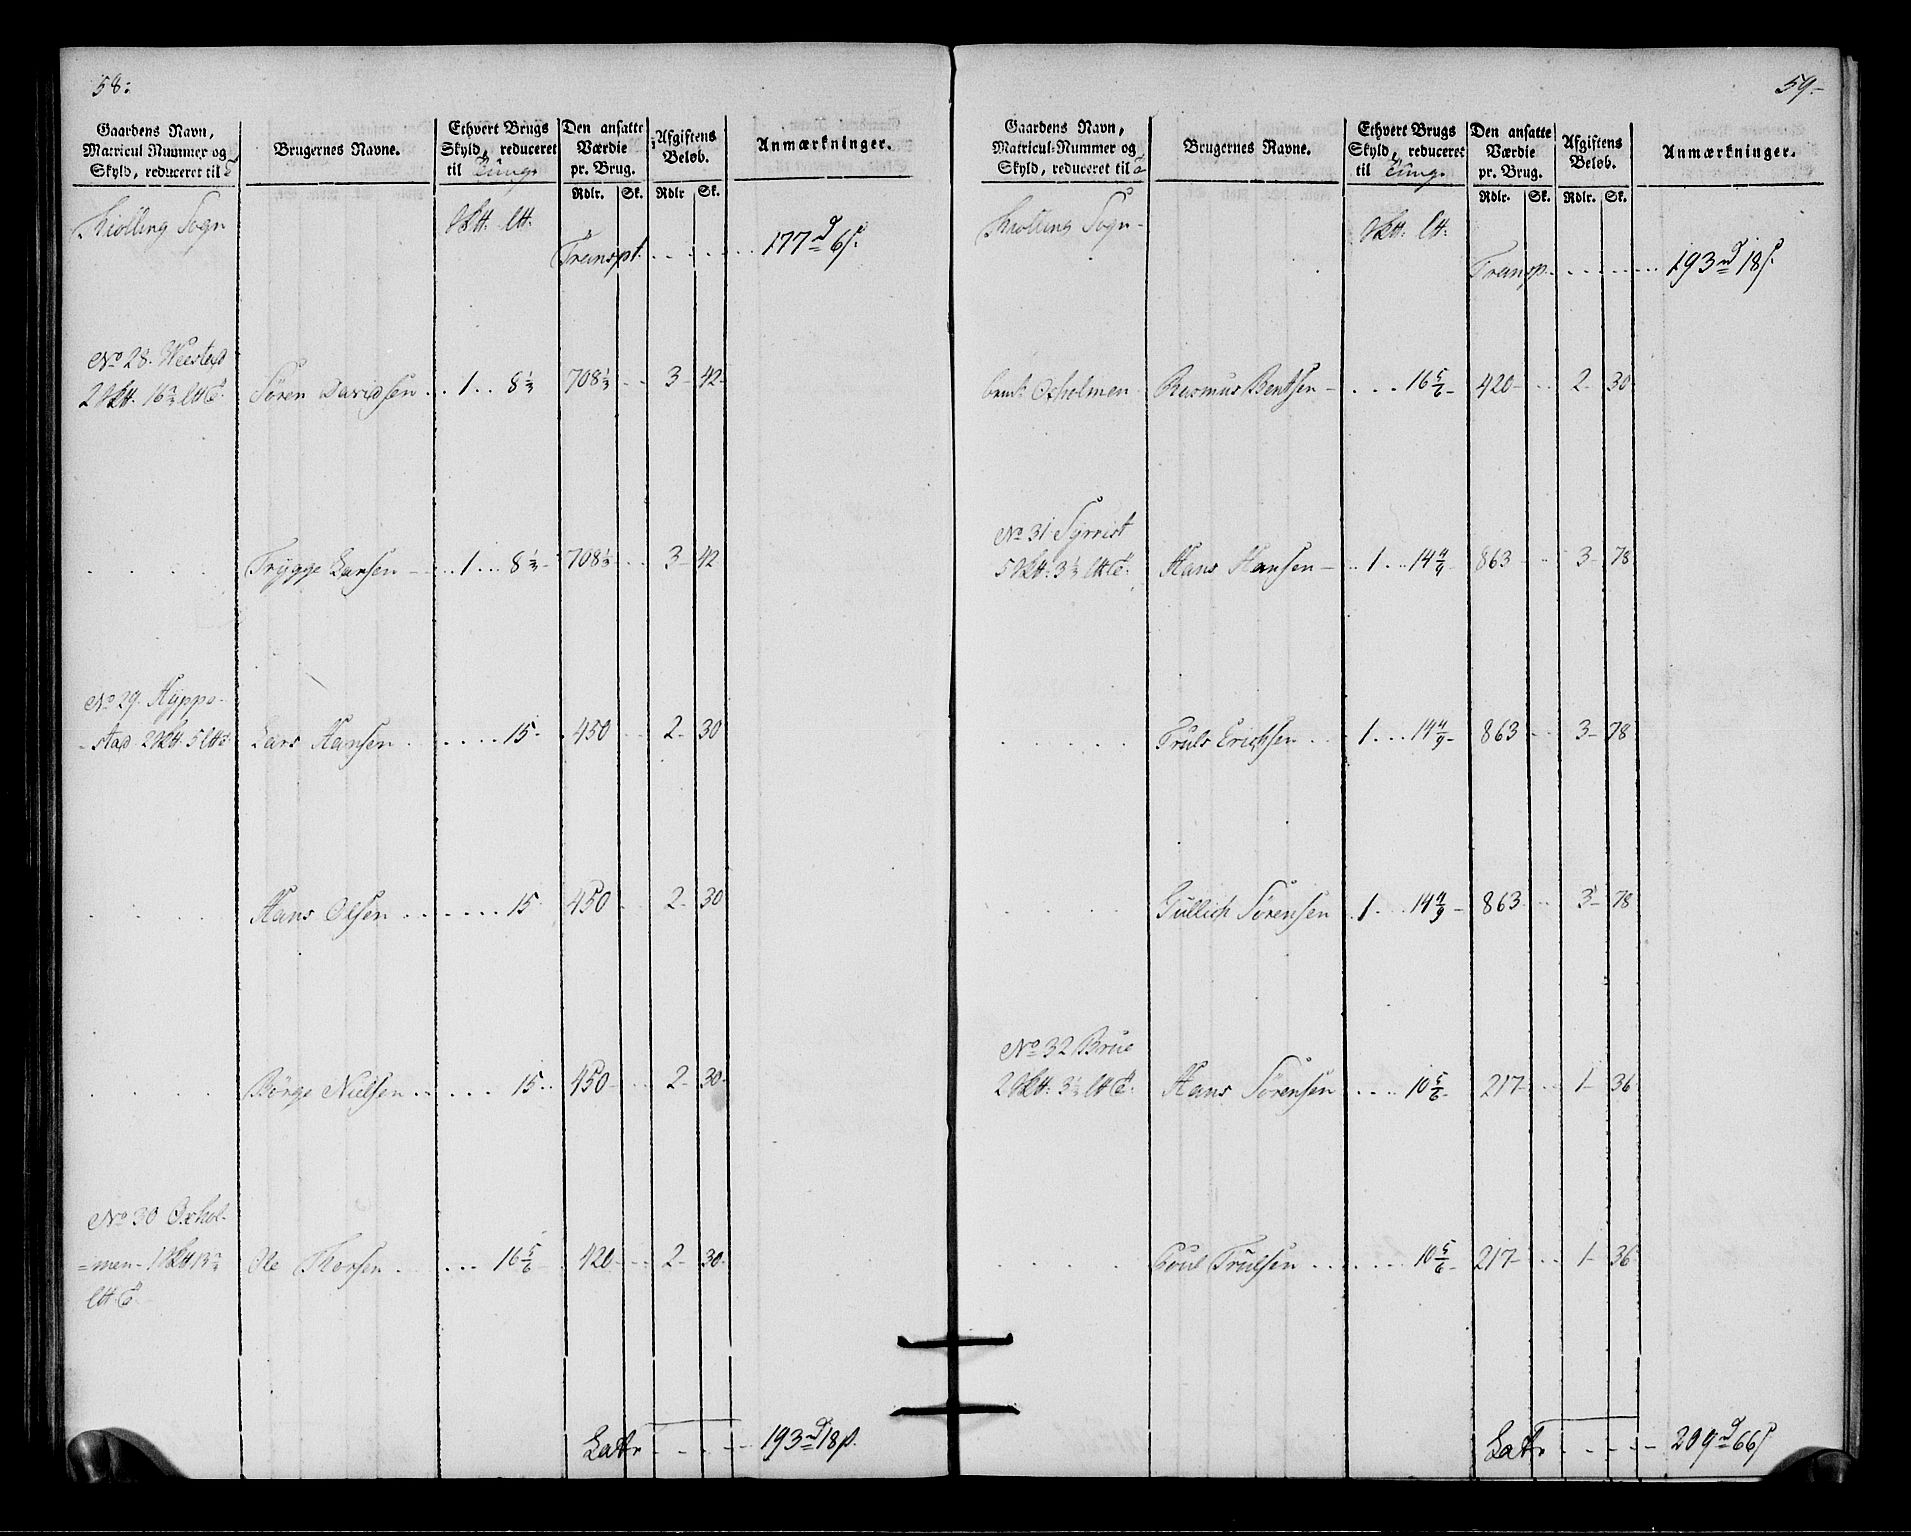 58:
Gaardens Navn, Matricul Nummer og Skyld, reduceret til
Brugernes Navne.
Ethvert Brugs Skyld, reduceret til Tung.
Den ansatte Værdie pr. Brug.
Afgiftens Beløb.
Anmærkninger.
Rdlr. Sk. Rdlr Sk.
Kiølling Sogn
Transpt. 177 rd 6 s.
No 28. Weestad
Søren Davidsen 1 8 1/3 708 1/3 3 42
Trygge Larsen 1 8 1/3 708 1/3 3 42
No 29. Hyppe-
stad Lars Hansen 15 450 2 30
Hans Olsen 15 450 2 30
Børge Nielsen 15 450 2 30
No 30 Oxhol-
=men Ole Thorsen 16 5/6 420 2 30
Latr 193 rd 18 s.
59
Gaardens Navn, Matricul-Nummer og Skyld, reduceret til
Brugernes Navne.
Ethvert Brugs Skyld, reduceret til Tung.
Den ansatte Værdie pr. Brug.
Afgiftens Beløb.
Anmærkninger.
Rdlr. Sk. Rdlr. Sk.
Kiølling Sogn
Transp. 193 rd 18 s.
Oxholmen Rasmus Bentsen 16 5/6 420 2 30
No 31 Tyrrist
Hans Hansen 1 14 4/9 863 3 78
Truls Erichsen 1 14 4/9 863 3 78
Gullich Sørensen 1 14 4/9 863 3 78
No 32 Brue
Hans Sørensen 10 5/6 217 1 36
Poul Trulsen 10 5/6 217 1 36
Latr 209 rd 66 s